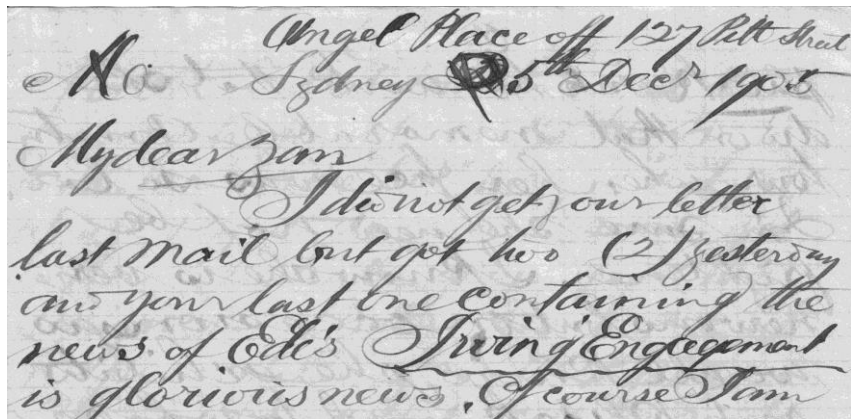 Angel Place off 127 Pitt Street
No. Sydney 5th Decr 1905
My dear Zam
I did not get your letter
last mail but got two (2) yesterday
and your last one containing the
news of Ede's Irving Engagement
is glorious news. Of course I am